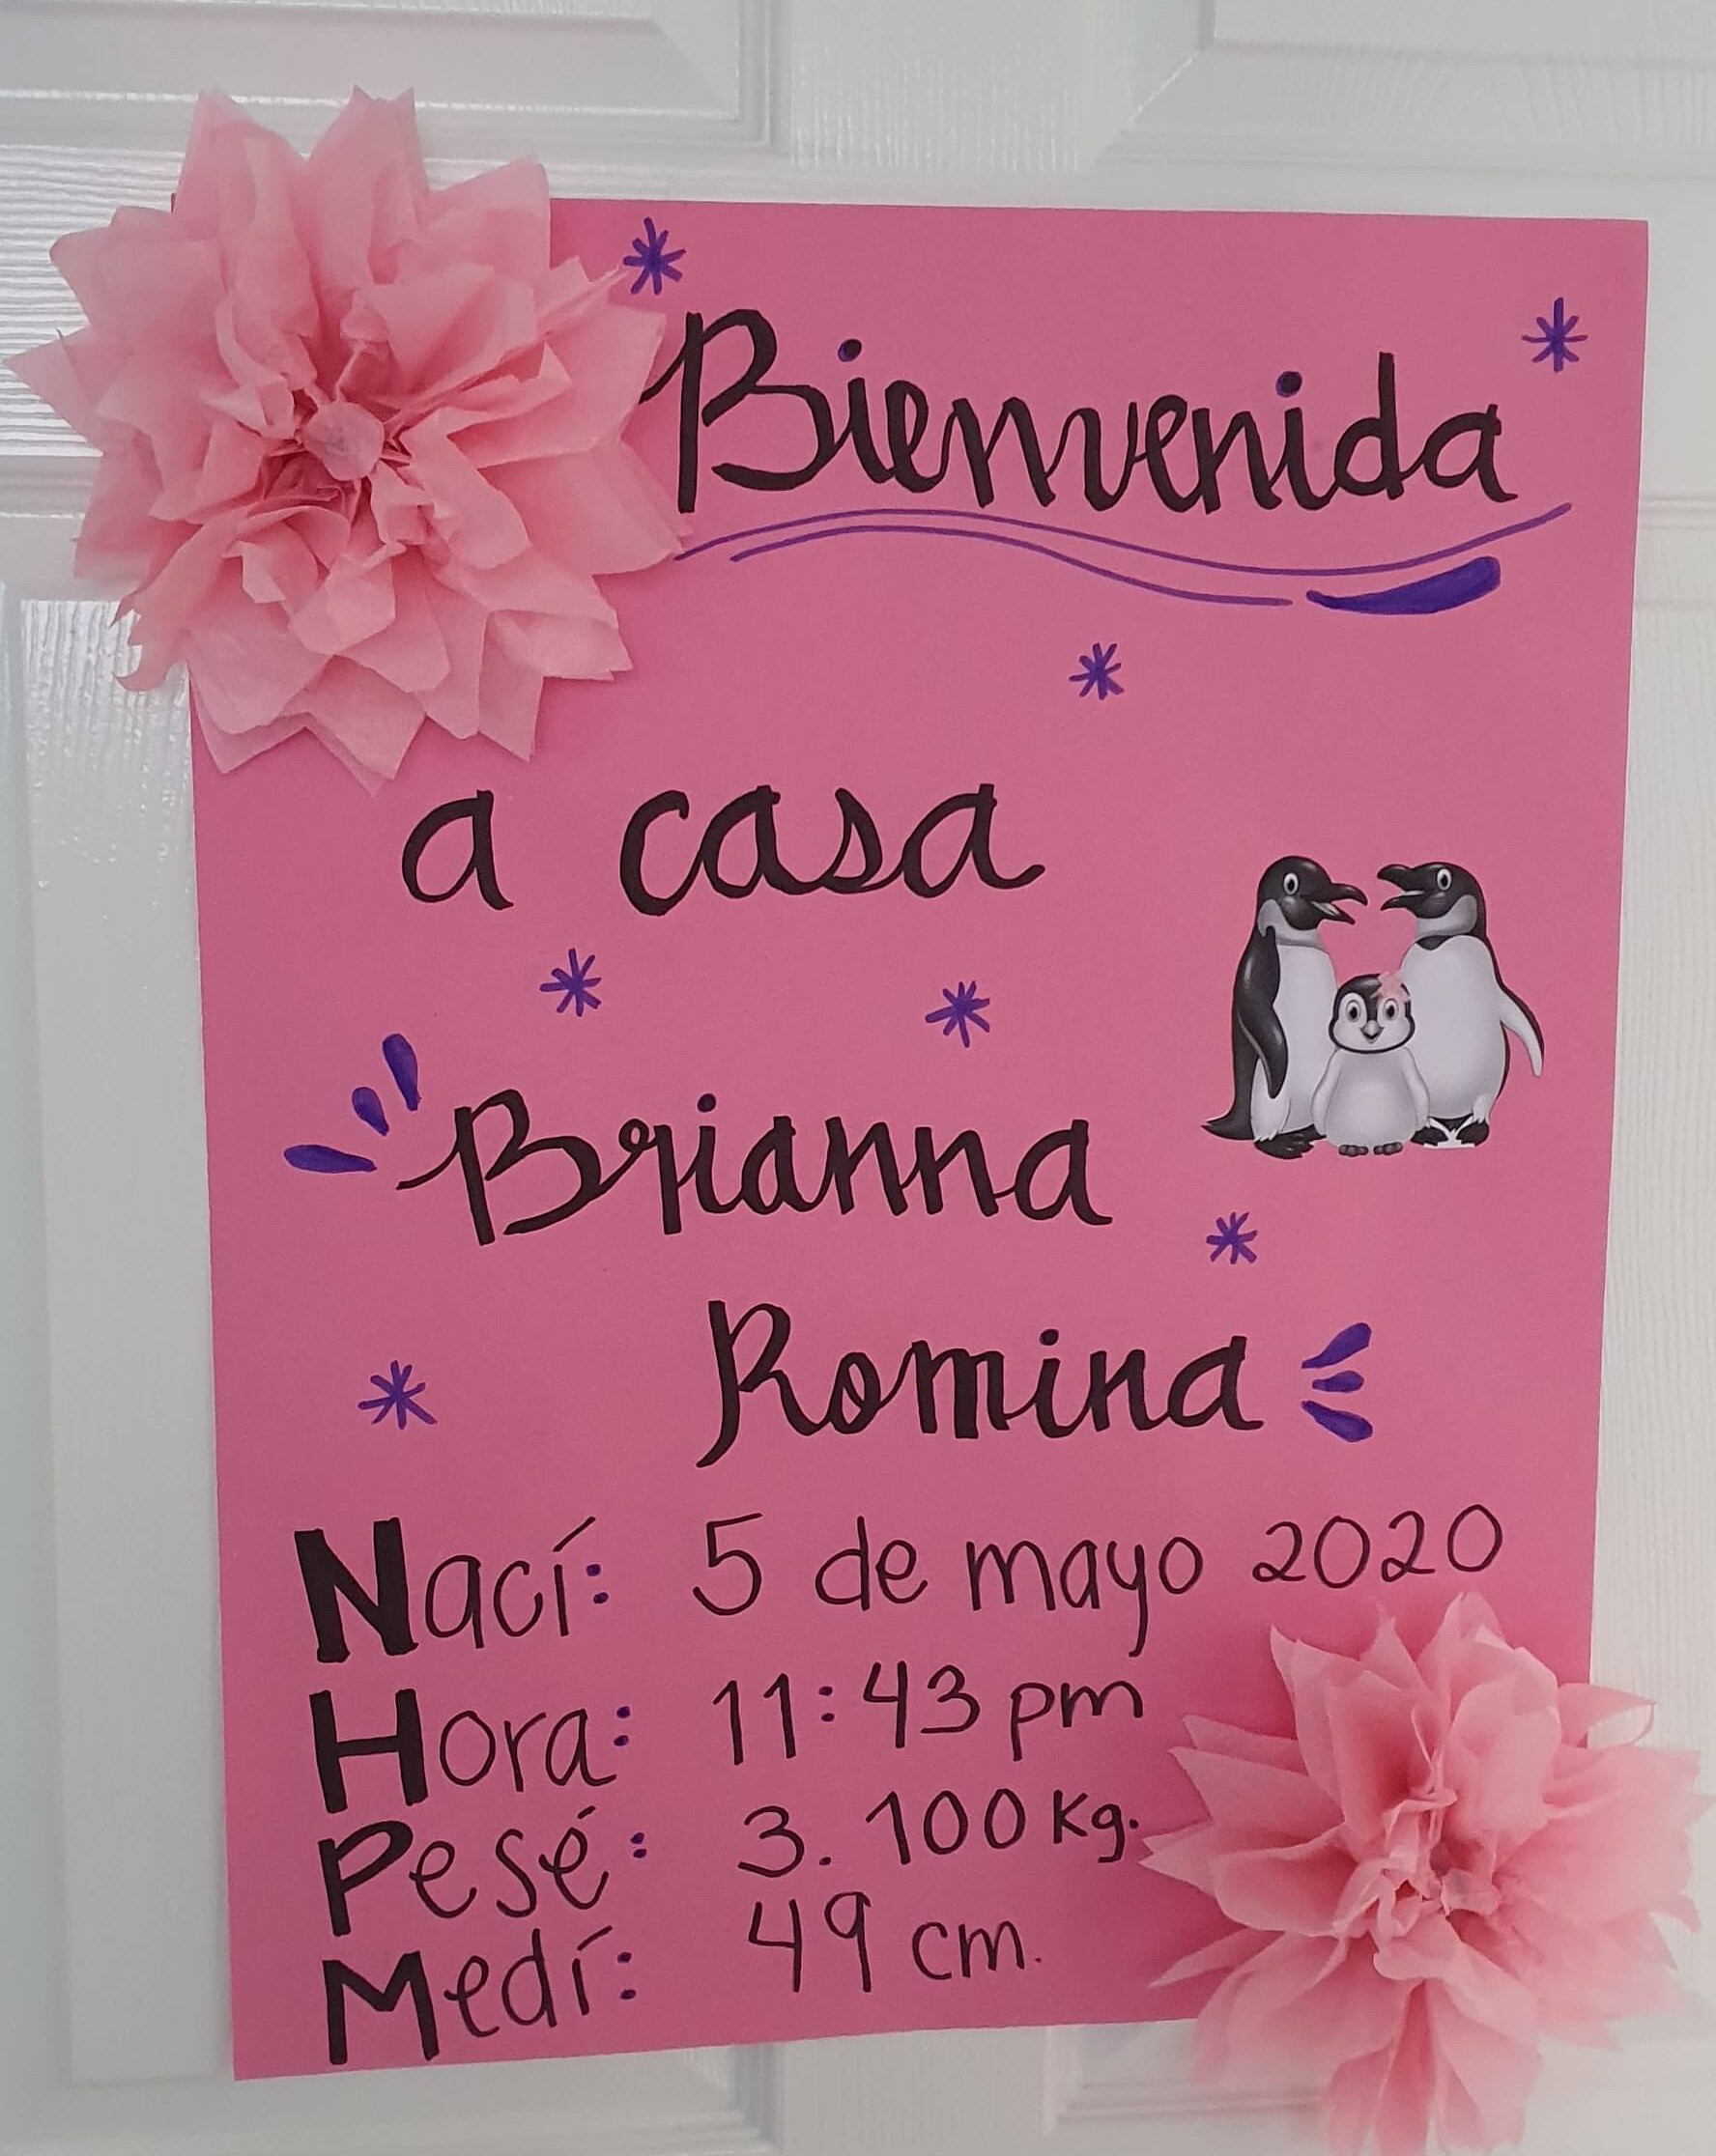 Bienvenida
a casa
Brianna
Romina
Nací: 5 de mayo 2020
Hora: 11:43 pm
Pesé: 3. 100 Kg.
Medí: 49 cm.